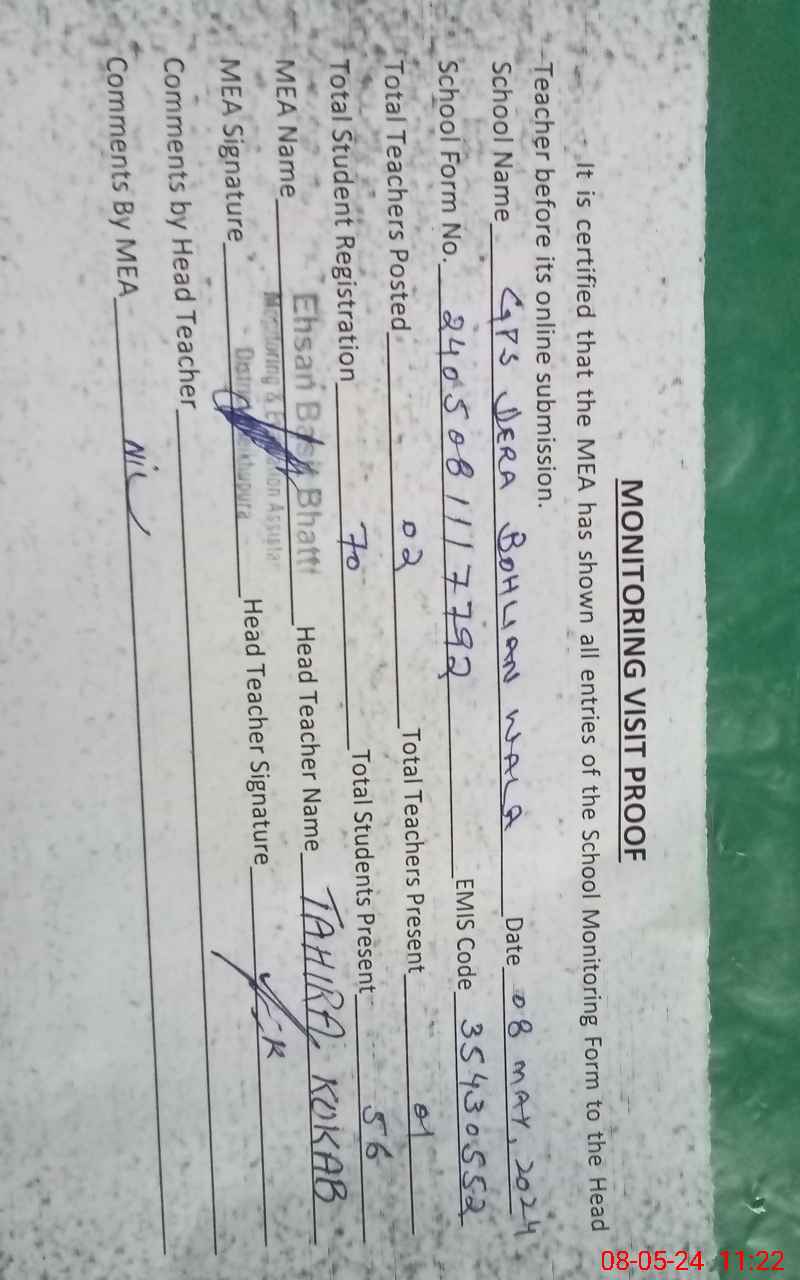 MONITORING VISIT PROOF
It is certified that the MEA has shown all entries of the School Monitoring Form to the Head
Teacher before its online submission.
School Name GPS DERA BOHLIAN WALA Date 08 MAY, 2024
School Form No. 2405081117792 EMIS Code 35430552
Total Teachers Posted 02 Total Teachers Present 01
Total Student Registration 70 Total Students Present 56
MEA Name Ehsan Basit Bhatti Head Teacher Name TAHIRA KOKAB
Monitoring &
District
MEA Signature Head Teacher Signature
Comments by Head Teacher
Comments By MEA Nil
08-05-24 11:22